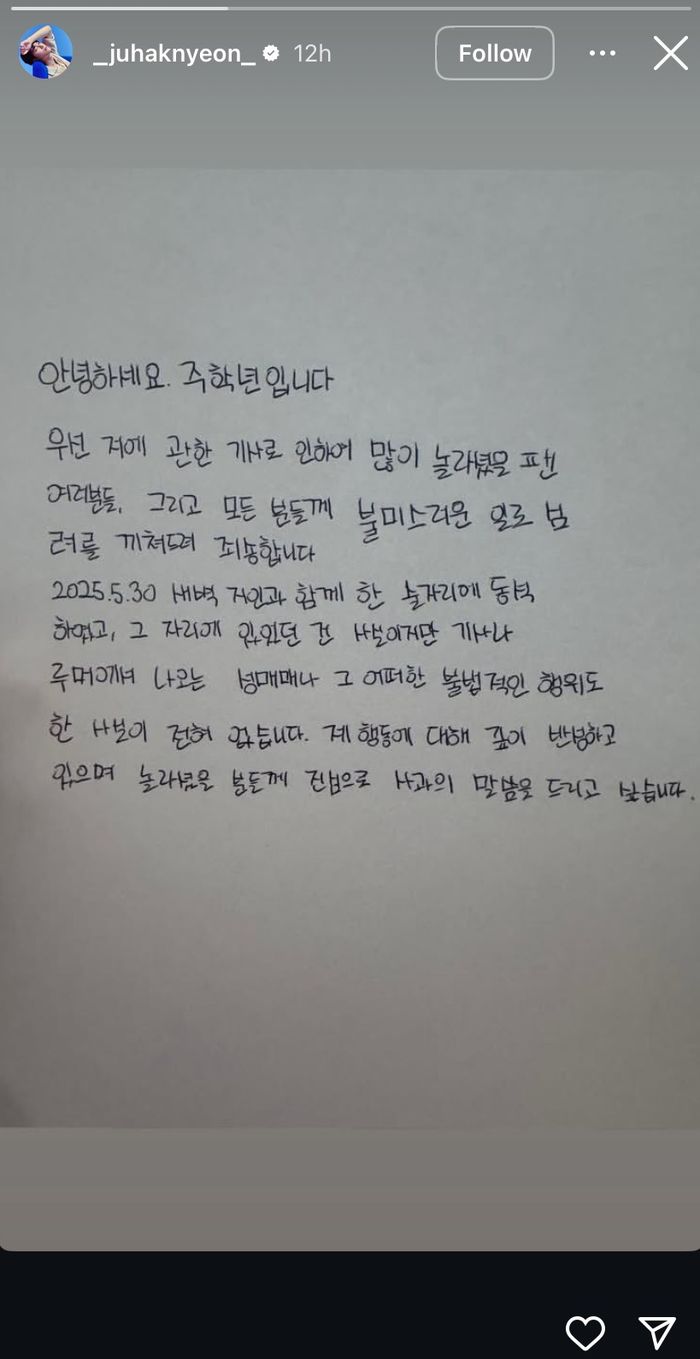 _juhaknyeon_ 12h Follow
안녕하세요. 주학년입니다
우선 저에 관한 기사로 인하여 많이 놀라셨을 팬
여러분들, 그리고 모든 분들께 불미스러운 일로 심
려를 끼쳐드려 죄송합니다
2025.5.30 새벽 지인과 함께 한 술자리에 동석
하였고, 그 자리에 있었던 건 사실이지만 기사나
루머에서 나오는 성매매나 그 어떠한 불법적인 행위도
한 사실이 전혀 없습니다. 제 행동에 대해 깊이 반성하고
있으며 놀라셨을 분들께 진심으로 사과의 말씀을 드리고 싶습니다.